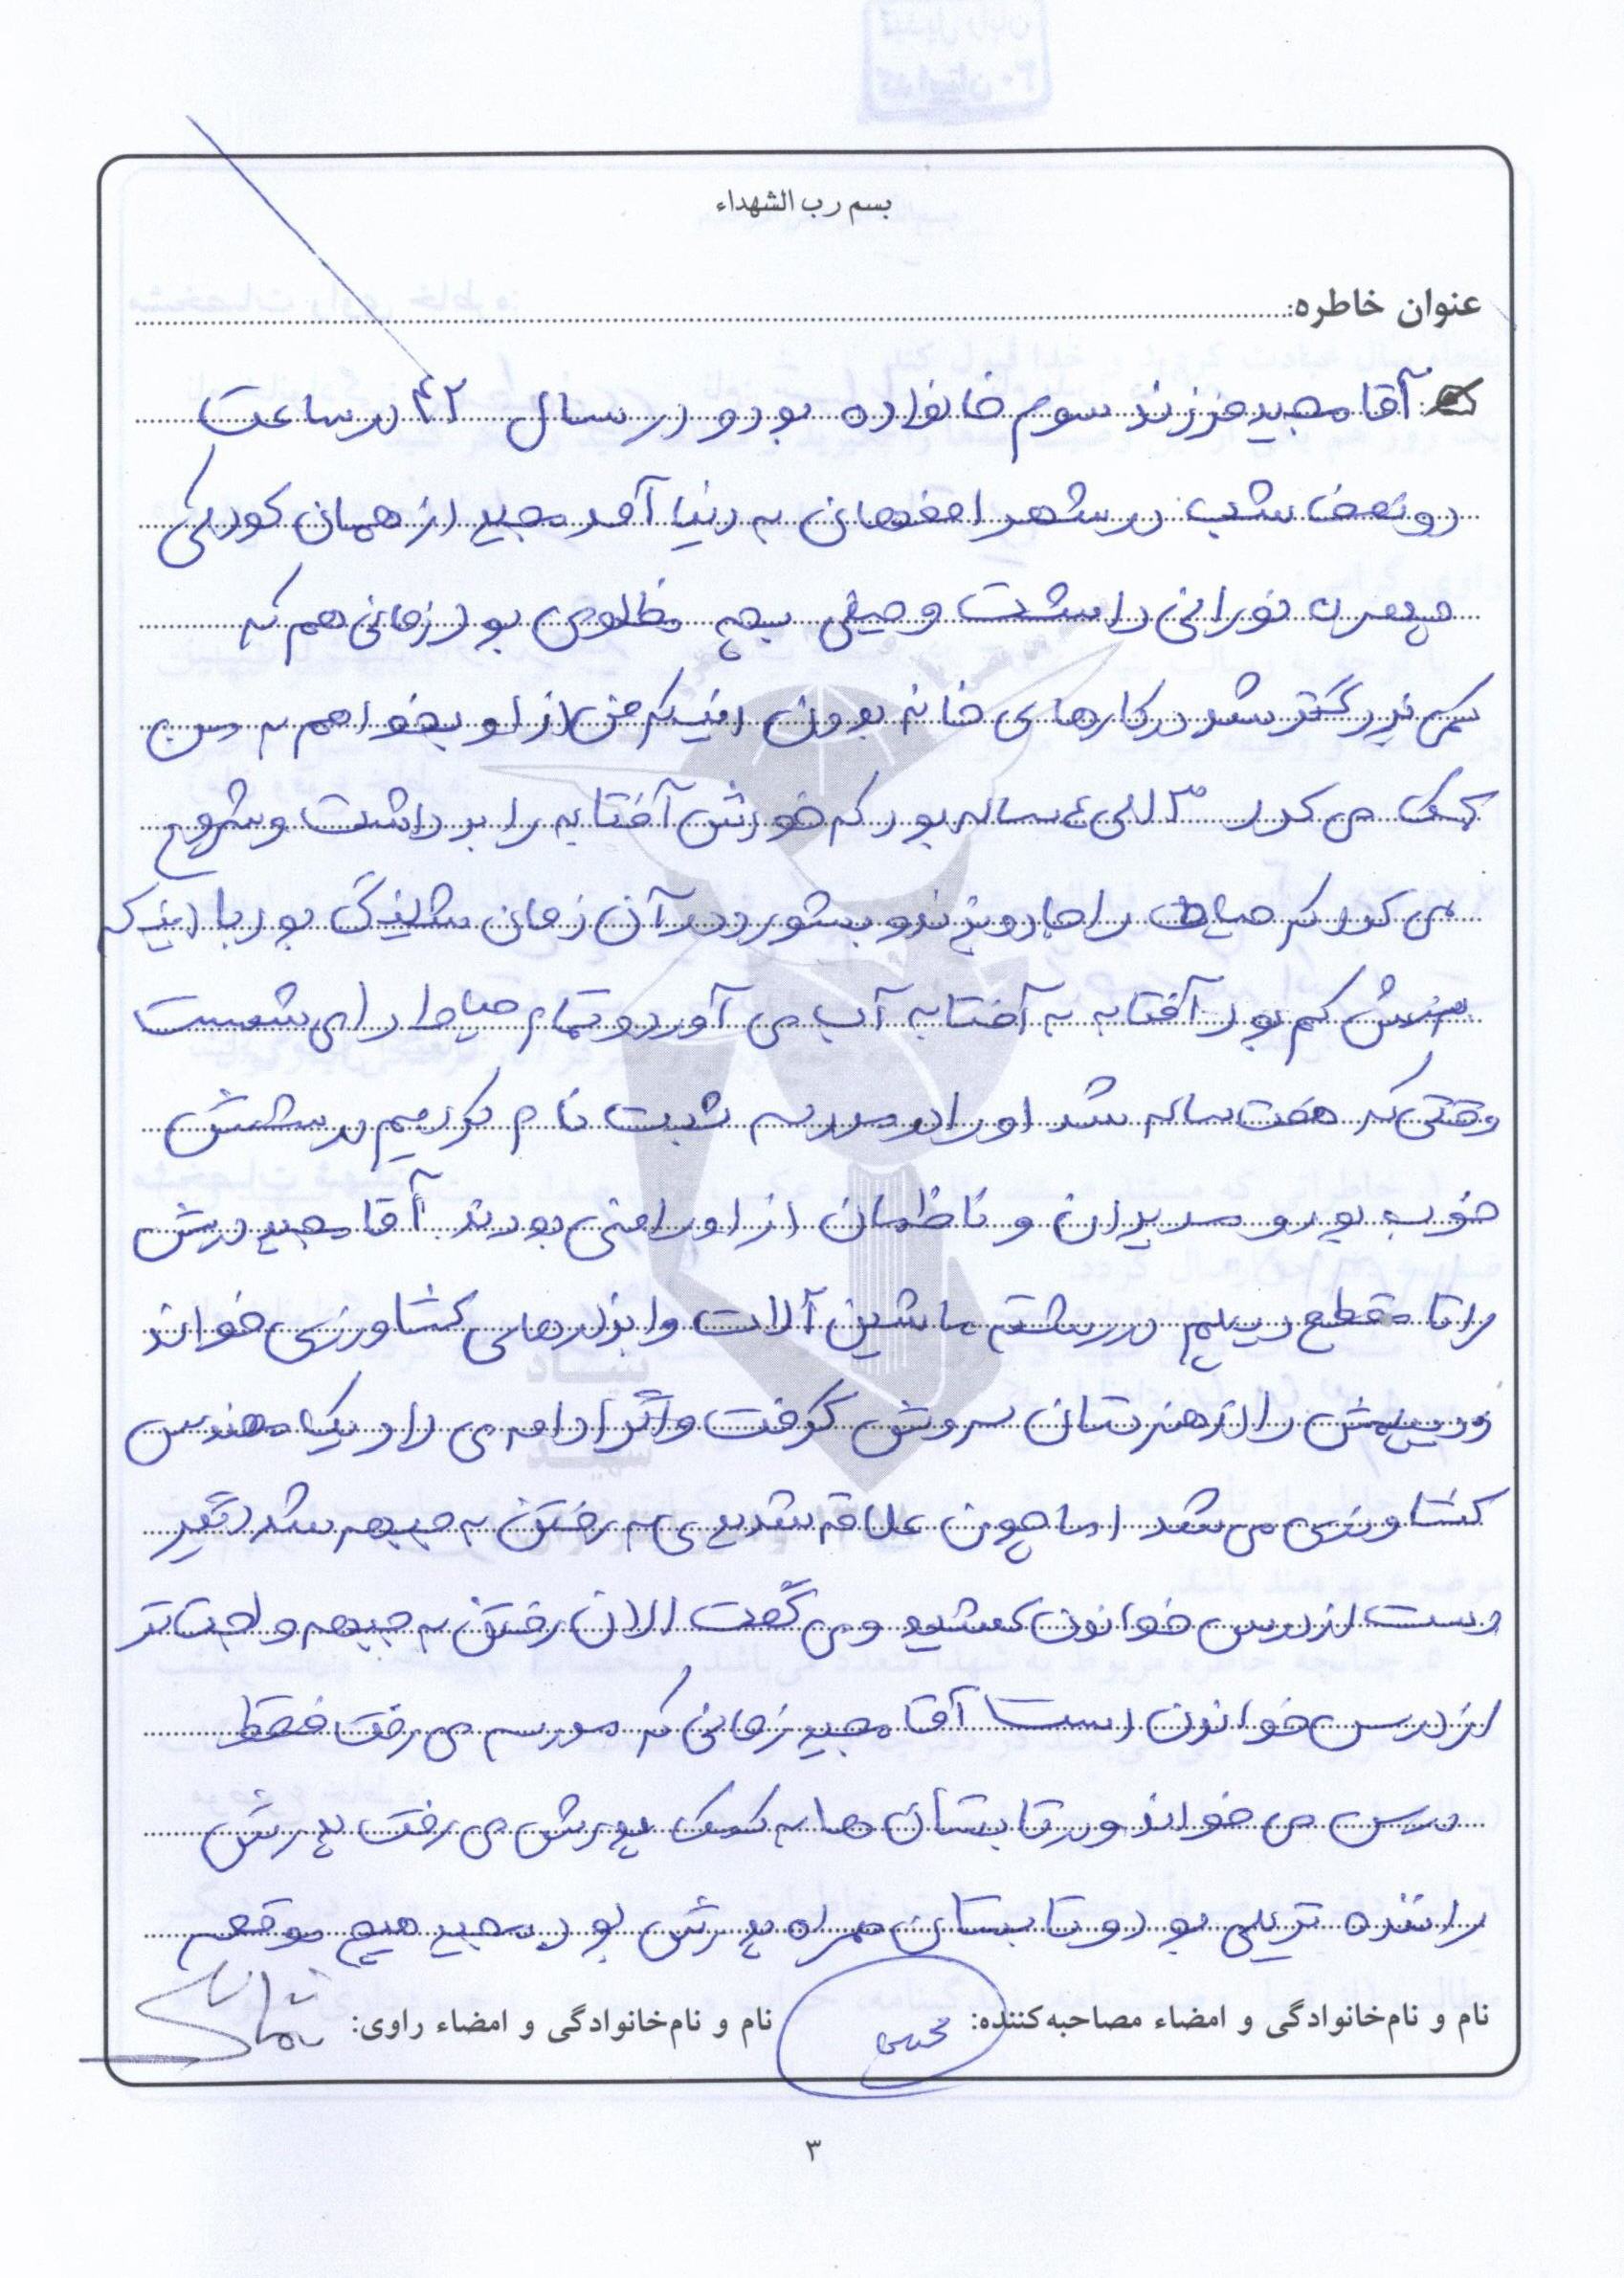 بسم رب الشهداء
عنوان خاطره:
آقا مجید فرزند سوم خانواده بود و در سال ۴۲ در ساعت
دو نصف شب در شهر اصفهان به دنیا آمد مجید از همان کودکی
چهره نورانی داشت و خیلی بچه مظلومی بود زمانی هم که
کمی بزرگتر شد در کارهای خانه بدون اینکه من از او بخواهم به من
کمک می کرد ۳ الی ۴ ساله بود که خودش آفتابه را بر داشت و شروع
می کرد که حیاط را جارو بزند و بشورد در آن زمان شلینگ بود با اینکه
سنش کم بود آفتابه به آفتابه آب می آورد و تمام حیاط را می شست
وقتی که هفت ساله شد او را در مدرسه ثبت نام کردیم درسش
خوب بود و مدیران و ناظمان از او راضی بودند آقا مجید درسش
را تا مقطع دیپلم در رشته ماشین آلات و ابزارهای کشاورزی خواند
و دیپلمش را از هنرستان سروش گرفت و اگر ادامه می داد یک مهندس
کشاورزی می شد اما چون علاقه شدیدی به رفتن به جبهه شد دیگر
دست از درس خواندن کشید و می گفت الان رفتن به جبهه واجب تر
از درس خواندن است آقا مجید زمانی که مدرسه می رفت فقط
درس می خواند و در تابستان ها به کمک پدرش می رفت پدرش
راننده تریلی بود و تابستان همراه پدرش بود مجید هیچ موقع
نام و نام‌خانوادگی و امضاء مصاحبه‌کننده: نام و نام‌خانوادگی و امضاء راوی:
۳